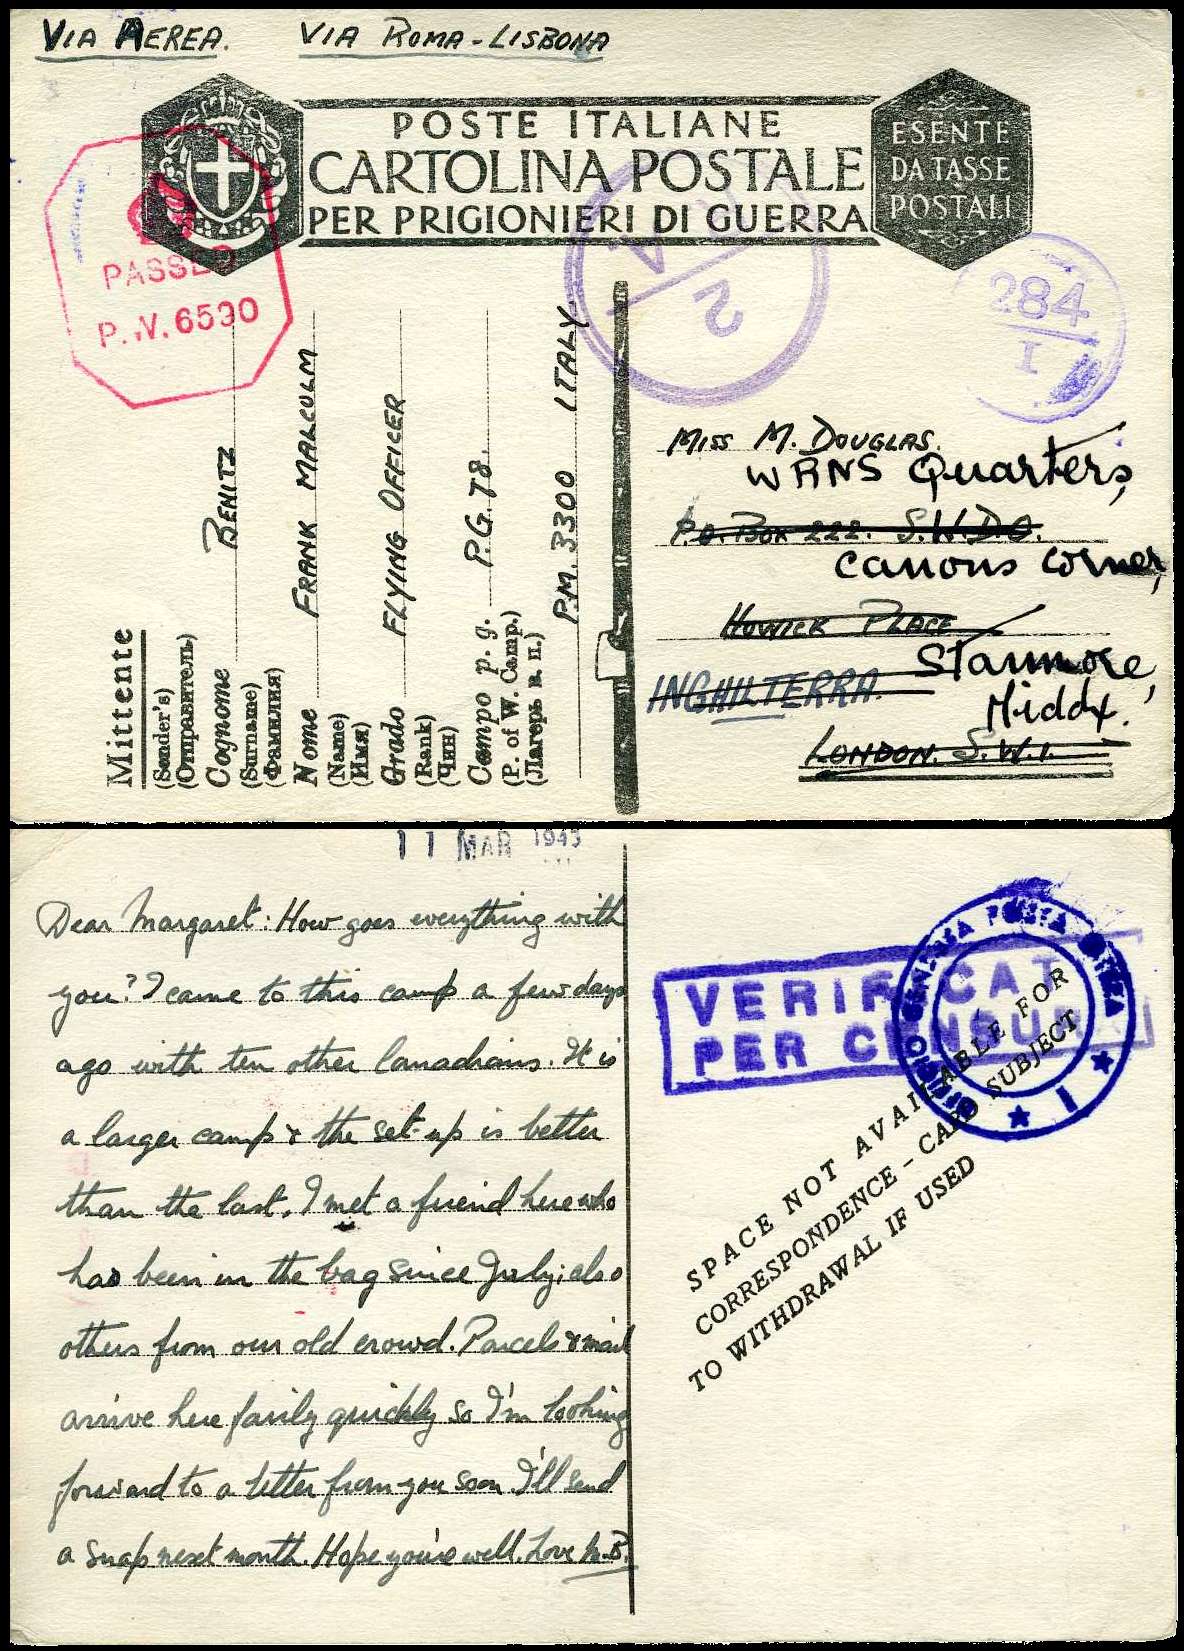 VIA AEREA. VIA ROMA-LISBONA
POSTE ITALIANE
CARTOLINA POSTALE
PER PRIGIONIERI DI GUERRA
ESENTE
DA TASSE
POSTALI
PASSED
P.W. 6590
2
284
I
Mittente
(Sender's)
(Отправитель)
Cognome BENITZ
(Surname)
(Фамилия)
Nome FRANK MALCOLM
(Name)
(Имя)
Grado FLYING OFFICER
(Rank)
(Чин)
Campo p. g. P.G. 78.
(P. of W. Camp.)
(Лагерь в. п.)
P.M. 3300 ITALY
MISS M. DOUGLAS.
WRNS Quarters,
P.O. BOX 222. S.W.D.O.
Canons Corner,
HOWICK PLACE
Stanmore,
INGHILTERRA.
Middx.
LONDON. S.W.1.
11 MAR 1943
Dear Margaret: How goes everything with
you? I came to this camp a few days
ago with ten other Canadians. It is
a larger camp & the set-up is better
than the last. I met a friend here who
has been in the bag since July; also
others from our old crowd. Parcels & mail
arrive here fairly quickly so I'm looking
forward to a letter from you soon. I'll send
a snap next month. Hope you're well. Love M.B.
VERIFICAT
PER CENSUR
UFFICIO CENSURA POSTA
1
SPACE NOT AVAILABLE FOR
CORRESPONDENCE - CARD SUBJECT
TO WITHDRAWAL IF USED